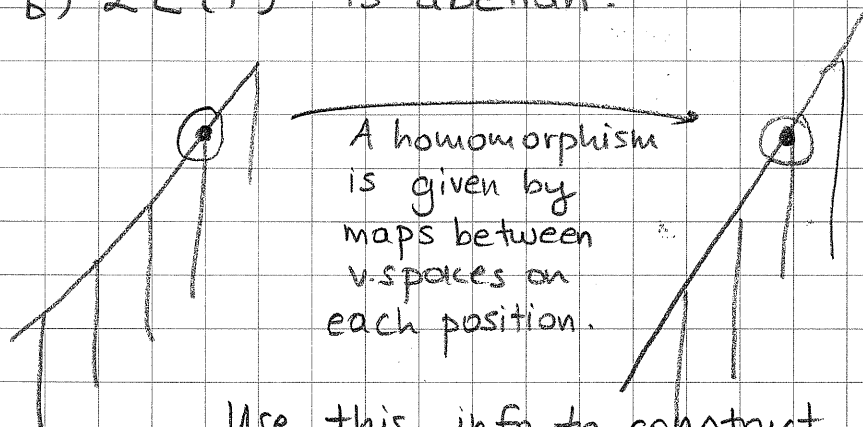 is abelian.
A homomorphism
is given by
maps between
v.spaces on
each position.
Use this info to construct